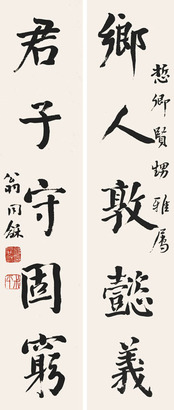 鄉人敦懿義
慤卿賢甥雅屬
君子守固窮
翁同龢